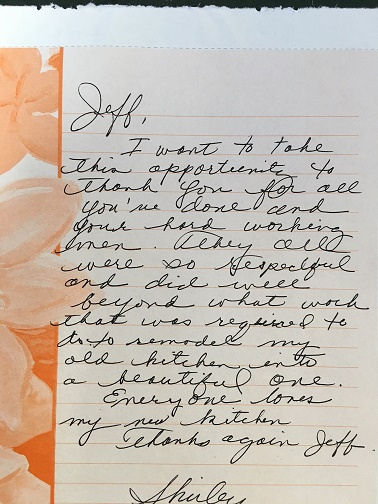 Jeff,
I want to take
this opportunity to
thank you for all
you've done and
your hard working
men. They all
were so respectful
and did well
beyond what work
that was required to
to remodel my
old kitchen into
a beautiful one.
Everyone loves
my new kitchen
Thanks again Jeff.
Shirley